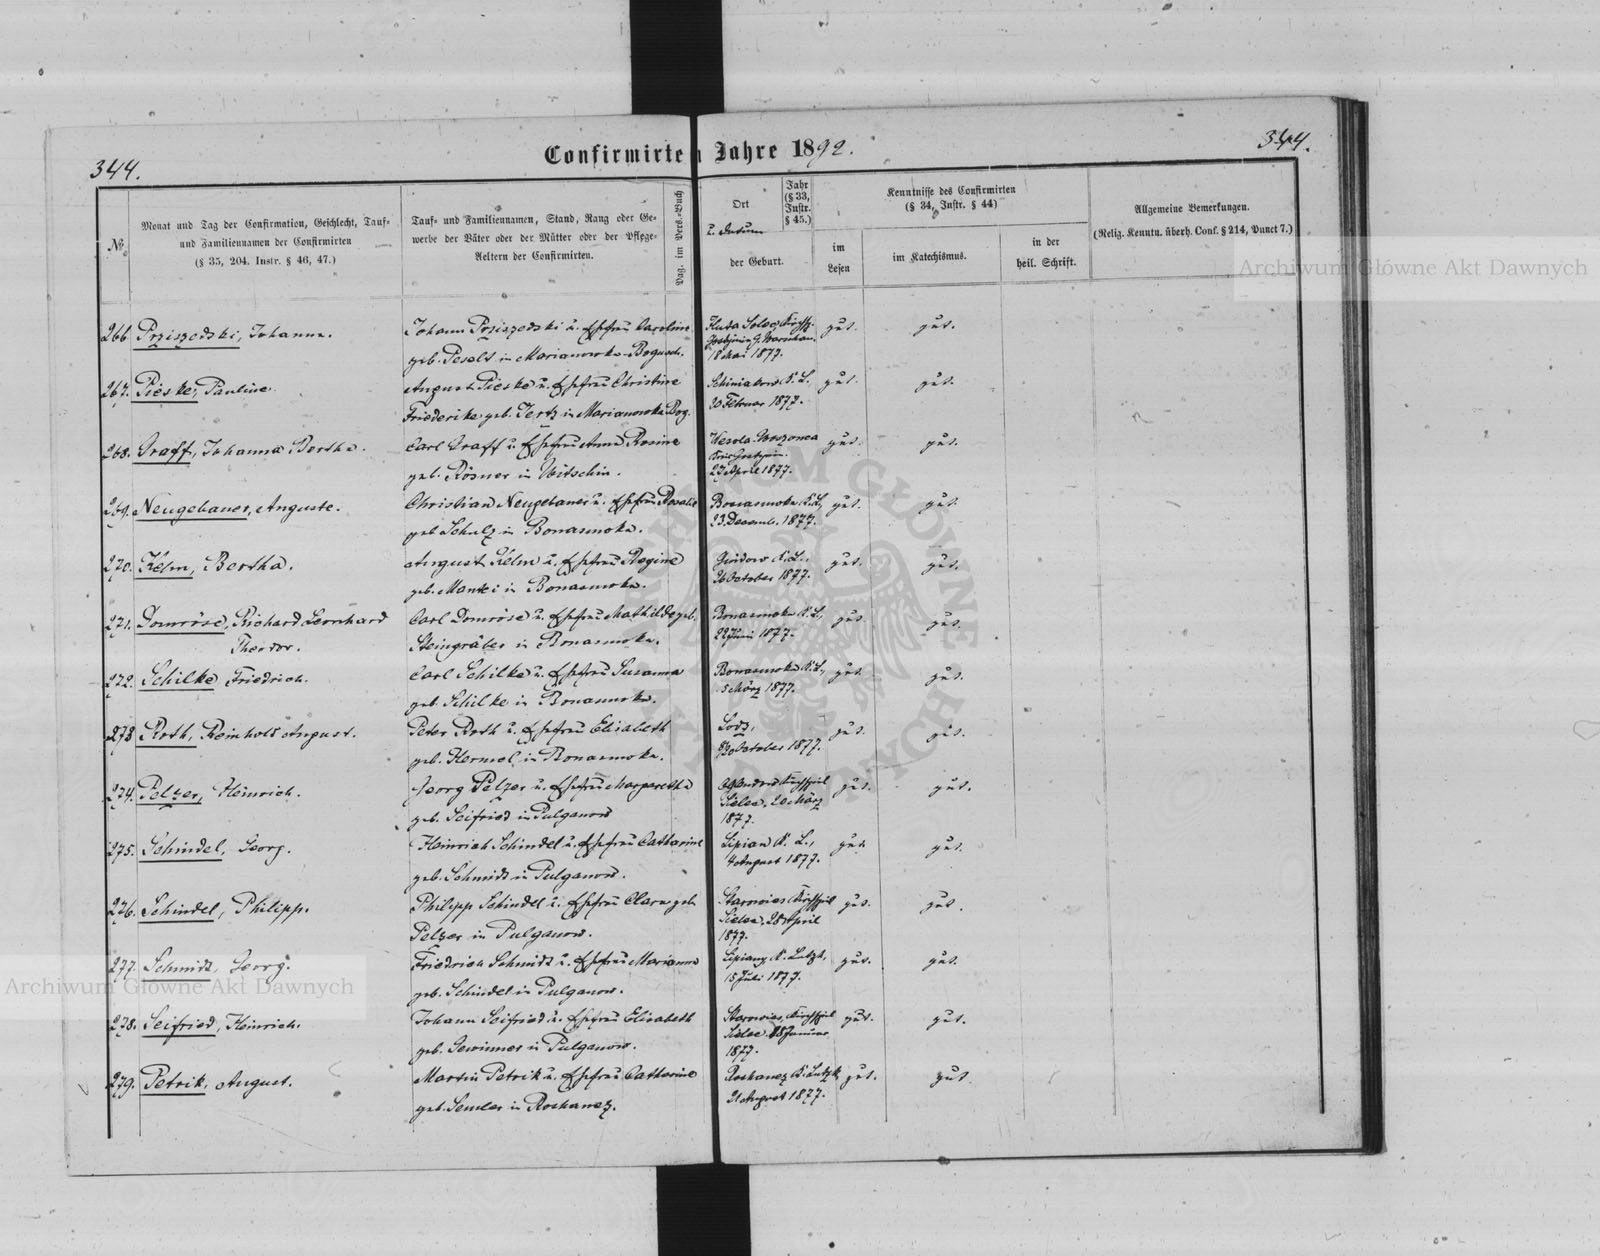 344.
Confirmirten Jahre 1892.
344.
№
Monat und Tag der Confirmation, Geschlecht, Tauf=
und Familiennamen der Confirmirten
(§ 35, 204. Instr. § 46, 47.)
Tauf= und Familiennamen, Stand, Rang oder Ge=
werbe der Väter oder der Mütter oder der Pflege=
Aeltern der Confirmirten.
Pag. im Pers.=Buch
Ort
u. Datum
der Geburt.
Jahr
(§ 33,
Instr.
§ 45.)
Kenntnisse des Confirmirten
(§ 34, Instr. § 44)
im
Lesen
im Katechismus.
in der
heil. Schrift.
Allgemeine Bemerkungen.
(Relig. Kenntn. überh. Conf. § 214, Punct 7.)
Archiwum Główne Akt Dawnych
266. Prziszedski, Johann.
Johann Prziszedski u. Ehefrau Caroline
geb. Pesolt in Marianowka-Bogusch.
18 Mai 1877.
gut.
gut.
267. Pieske, Pauline
August Pieske u. Ehefrau Christine
Friederike geb. Jertz in Marianowka Bog.
20 Februar 1877.
gut.
gut.
268. Graff, Johanna Bertha.
Carl Graff u. Ehefrau Anna Rosine
geb. Rösner in Witschin.
27 April 1877.
gut.
gut.
269. Neugebauer, Auguste.
Christian Neugebauer u. Ehefrau Rosalie
geb. Schulz in Bonasnowka.
Bonasnowka K. L.,
23. Decemb. 1877.
gut.
gut.
270. Kelm, Bertha.
August Kelm u. Ehefrau Regine
geb. Mantei in Bonasnowka.
26 October 1877.
gut.
gut.
271. Domröse, Richard Leonhard
Theodor.
Carl Domröse u. Ehefrau Mathilde geb.
Steingräber in Bonasnowka.
Bonasnowka K. L.,
22 Juni 1877.
gut.
gut.
272. Schilke Friedrich.
Carl Schilke u. Ehefrau Susanna
geb. Schilke in Bonasnowka.
Bonasnowka K. L.,
5 März 1877.
gut.
gut.
273. Roth, Reinhold August.
Peter Roth u. Ehefrau Elisabeth
geb. Hermel in Bonasnowka.
Lodz,
October 1877.
gut.
gut.
274. Pelzer, Heinrich.
Georg Pelzer u. Ehefrau Margaretha
geb. Seifried in Pulganow
Kirchspiel
Sielce, 20 März
1877.
gut.
gut.
275. Schindel, Georg.
Heinrich Schindel u. Ehefrau Catharine
geb. Schmidt in Pulganow.
Lipian K. L.,
4 August 1877.
gut.
gut.
276. Schindel, Philipp.
Philipp Schindel u. Ehefrau Clara geb.
Pelzer in Pulganow.
Starowies Kirchspiel
Sielce, 28 April
1877.
gut.
gut.
277. Schmidt, Georg.
Friedrich Schmidt u. Ehefrau Marianna
geb. Schindel in Pulganow.
Lipiany K. Lutzk,
15 Juli 1877.
gut.
gut.
Archiwum Główne Akt Dawnych
278. Seifried, Heinrich.
Johann Seifried u. Ehefrau Elisabeth
geb. Gewinner in Pulganow.
Starowies, Kirchspiel
Sielce, Januar
1877.
gut.
gut.
279. Petrik, August.
Martin Petrik u. Ehefrau Catharine
geb. Semler in Roshanez.
Roshanez K. Lutzk
21 August 1877.
gut.
gut